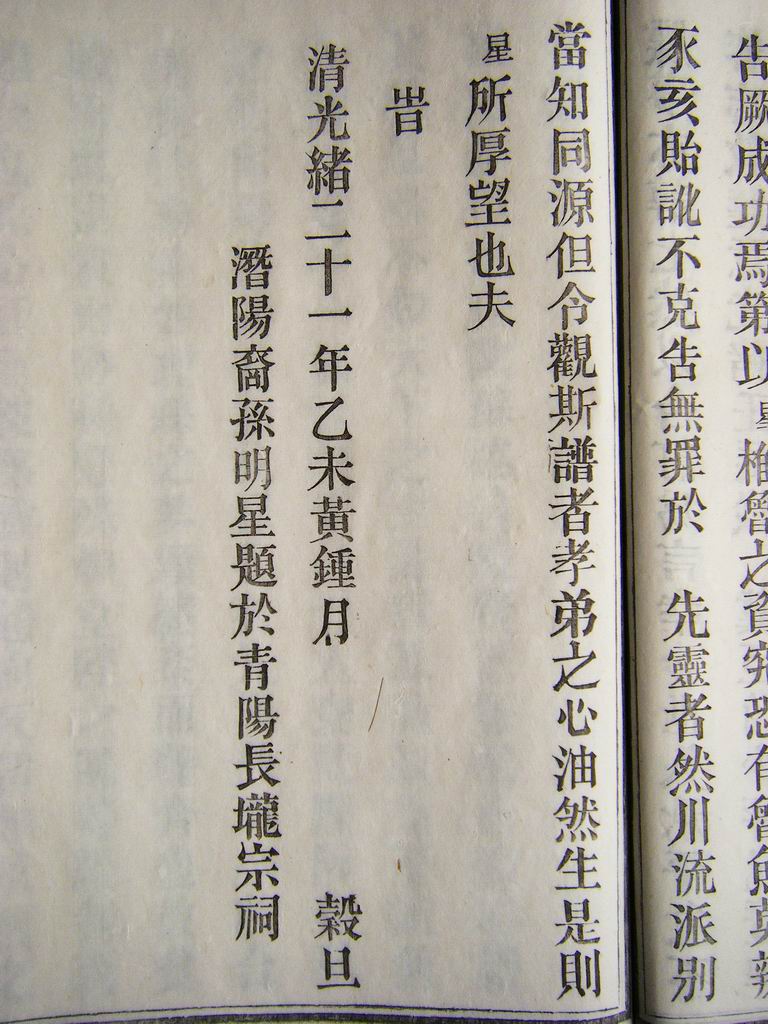 告厥成功焉第以星樗魯之資究恐有魯魚莫辨
豕亥貽訛不克告無罪於　先靈者然川流派別
當知同源但令觀斯譜者孝弟之心油然生是則
星所厚望也夫
旹
清光緒二十一年乙未黃鍾月　穀旦
潛陽裔孫明星題於青陽長壠宗祠